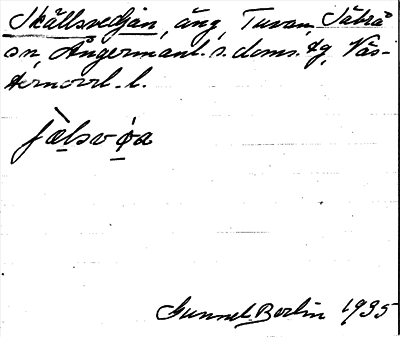 Skällsvedjan, äng, Tuvan, Säbrå
sn, Ångermanl. s. doms. tg, Väs-
ternorrl. l.
Gunnel Berlin 1935